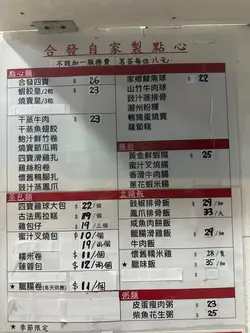 合發自家製點心
不設加一服務費 茗茶每位八元
點心類
合發四寶 $ 26
蝦餃皇/2粒 $ 23
燒賣皇/2粒
干蒸牛肉 $ 23
干蒸魚翅餃
鮑汁鮮竹卷
燒賣節瓜甫
四寶滑雞扎
雞絲粉卷
懷舊鴨腳扎
豉汁蒸鳳爪
家鄉鯪魚球 $ 22
山竹牛肉球
豉汁蒸排骨
潮州粉粿
鵪鶉蛋燒賣
蘿蔔糕
腸粉
黃金鮮蝦腸 $ 25
香茜牛肉腸
豉汁排骨腸
蔥花蝦米腸
四寶雞球大包 $ 22/個
古法馬拉糕 $ 19/個
雞包仔 $ 19/三個
蜜汁叉燒包 $ 10/個
$ 19/兩個
糯米卷 $ 11/個
蓮蓉包 $ 12/兩個
臘腸卷(冬天供應) $ 11/個
豉椒排骨飯 $ 29/細
鳳爪排骨飯 33/大
咸魚肉餅飯
豉汁滑雞飯
牛肉飯
懷舊糯米雞 $ 28/隻
臘味飯 $ 35/細
粥類
皮蛋瘦肉粥 $ 23
柴魚花生粥 $ 25
★季節限定